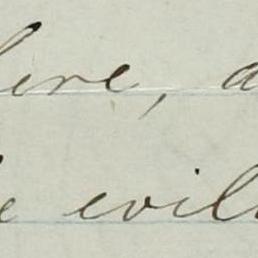 here, a
e evil